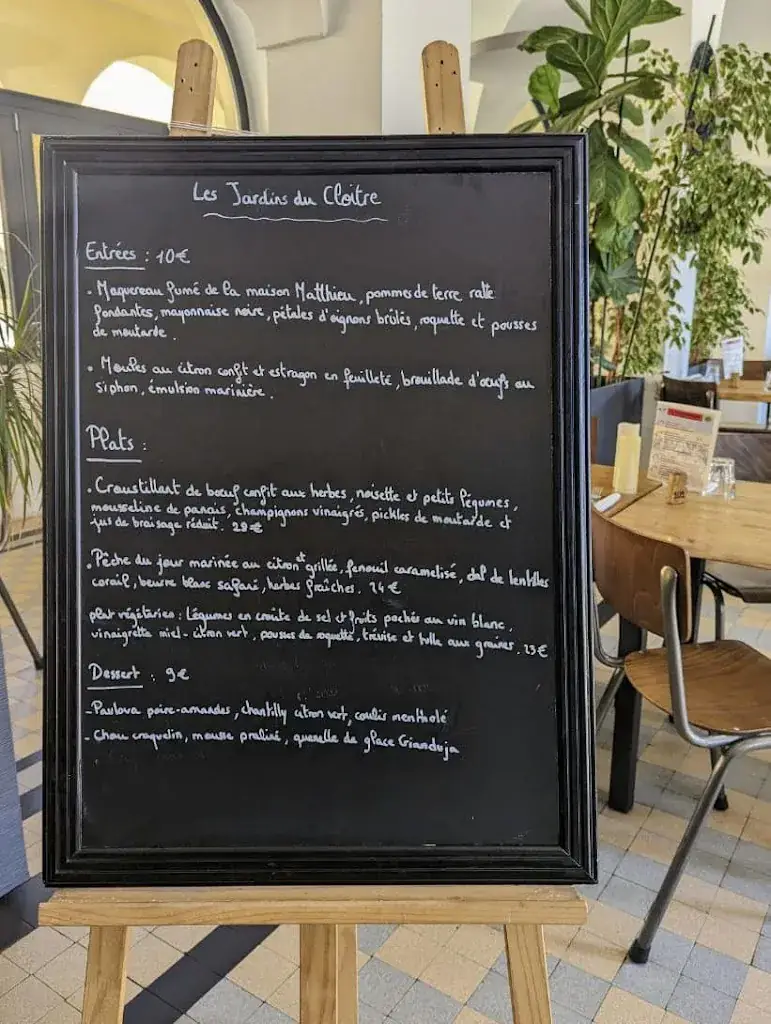 Les Jardins du Cloitre
Entrées : 10€
. Maquereau fumé de la maison Matthieu, pommes de terre ratte
fondantes, mayonnaise noire, pétales d'oignons brûlés, roquette et pousses
de moutarde.
. Moules au citron confit et estragon en feuilleté, brouillade d'oeufs au
siphon, émulsion marinière.
Plats :
. Croustillant de boeuf confit aux herbes, noisette et petits légumes,
mousseline de panais, champignons vinaigrés, pickles de moutarde et
jus de braisage réduit. 28€
. Pêche du jour marinée au citron et grillée, fenouil caramelisé, dal de lentilles
corail, beurre blanc safrané, herbes fraîches. 24€
plat végétarien : Légumes en croûte de sel et fruits pochés au vin blanc,
vinaigrette miel-citron vert, pousses de roquette, trévise et tuile aux graines. 23€
Dessert : 9€
- Pavlova poire-amandes, chantilly citron vert, coulis mentholé
- Chou craquelin, mousse praliné, quenelle de glace Gianduja